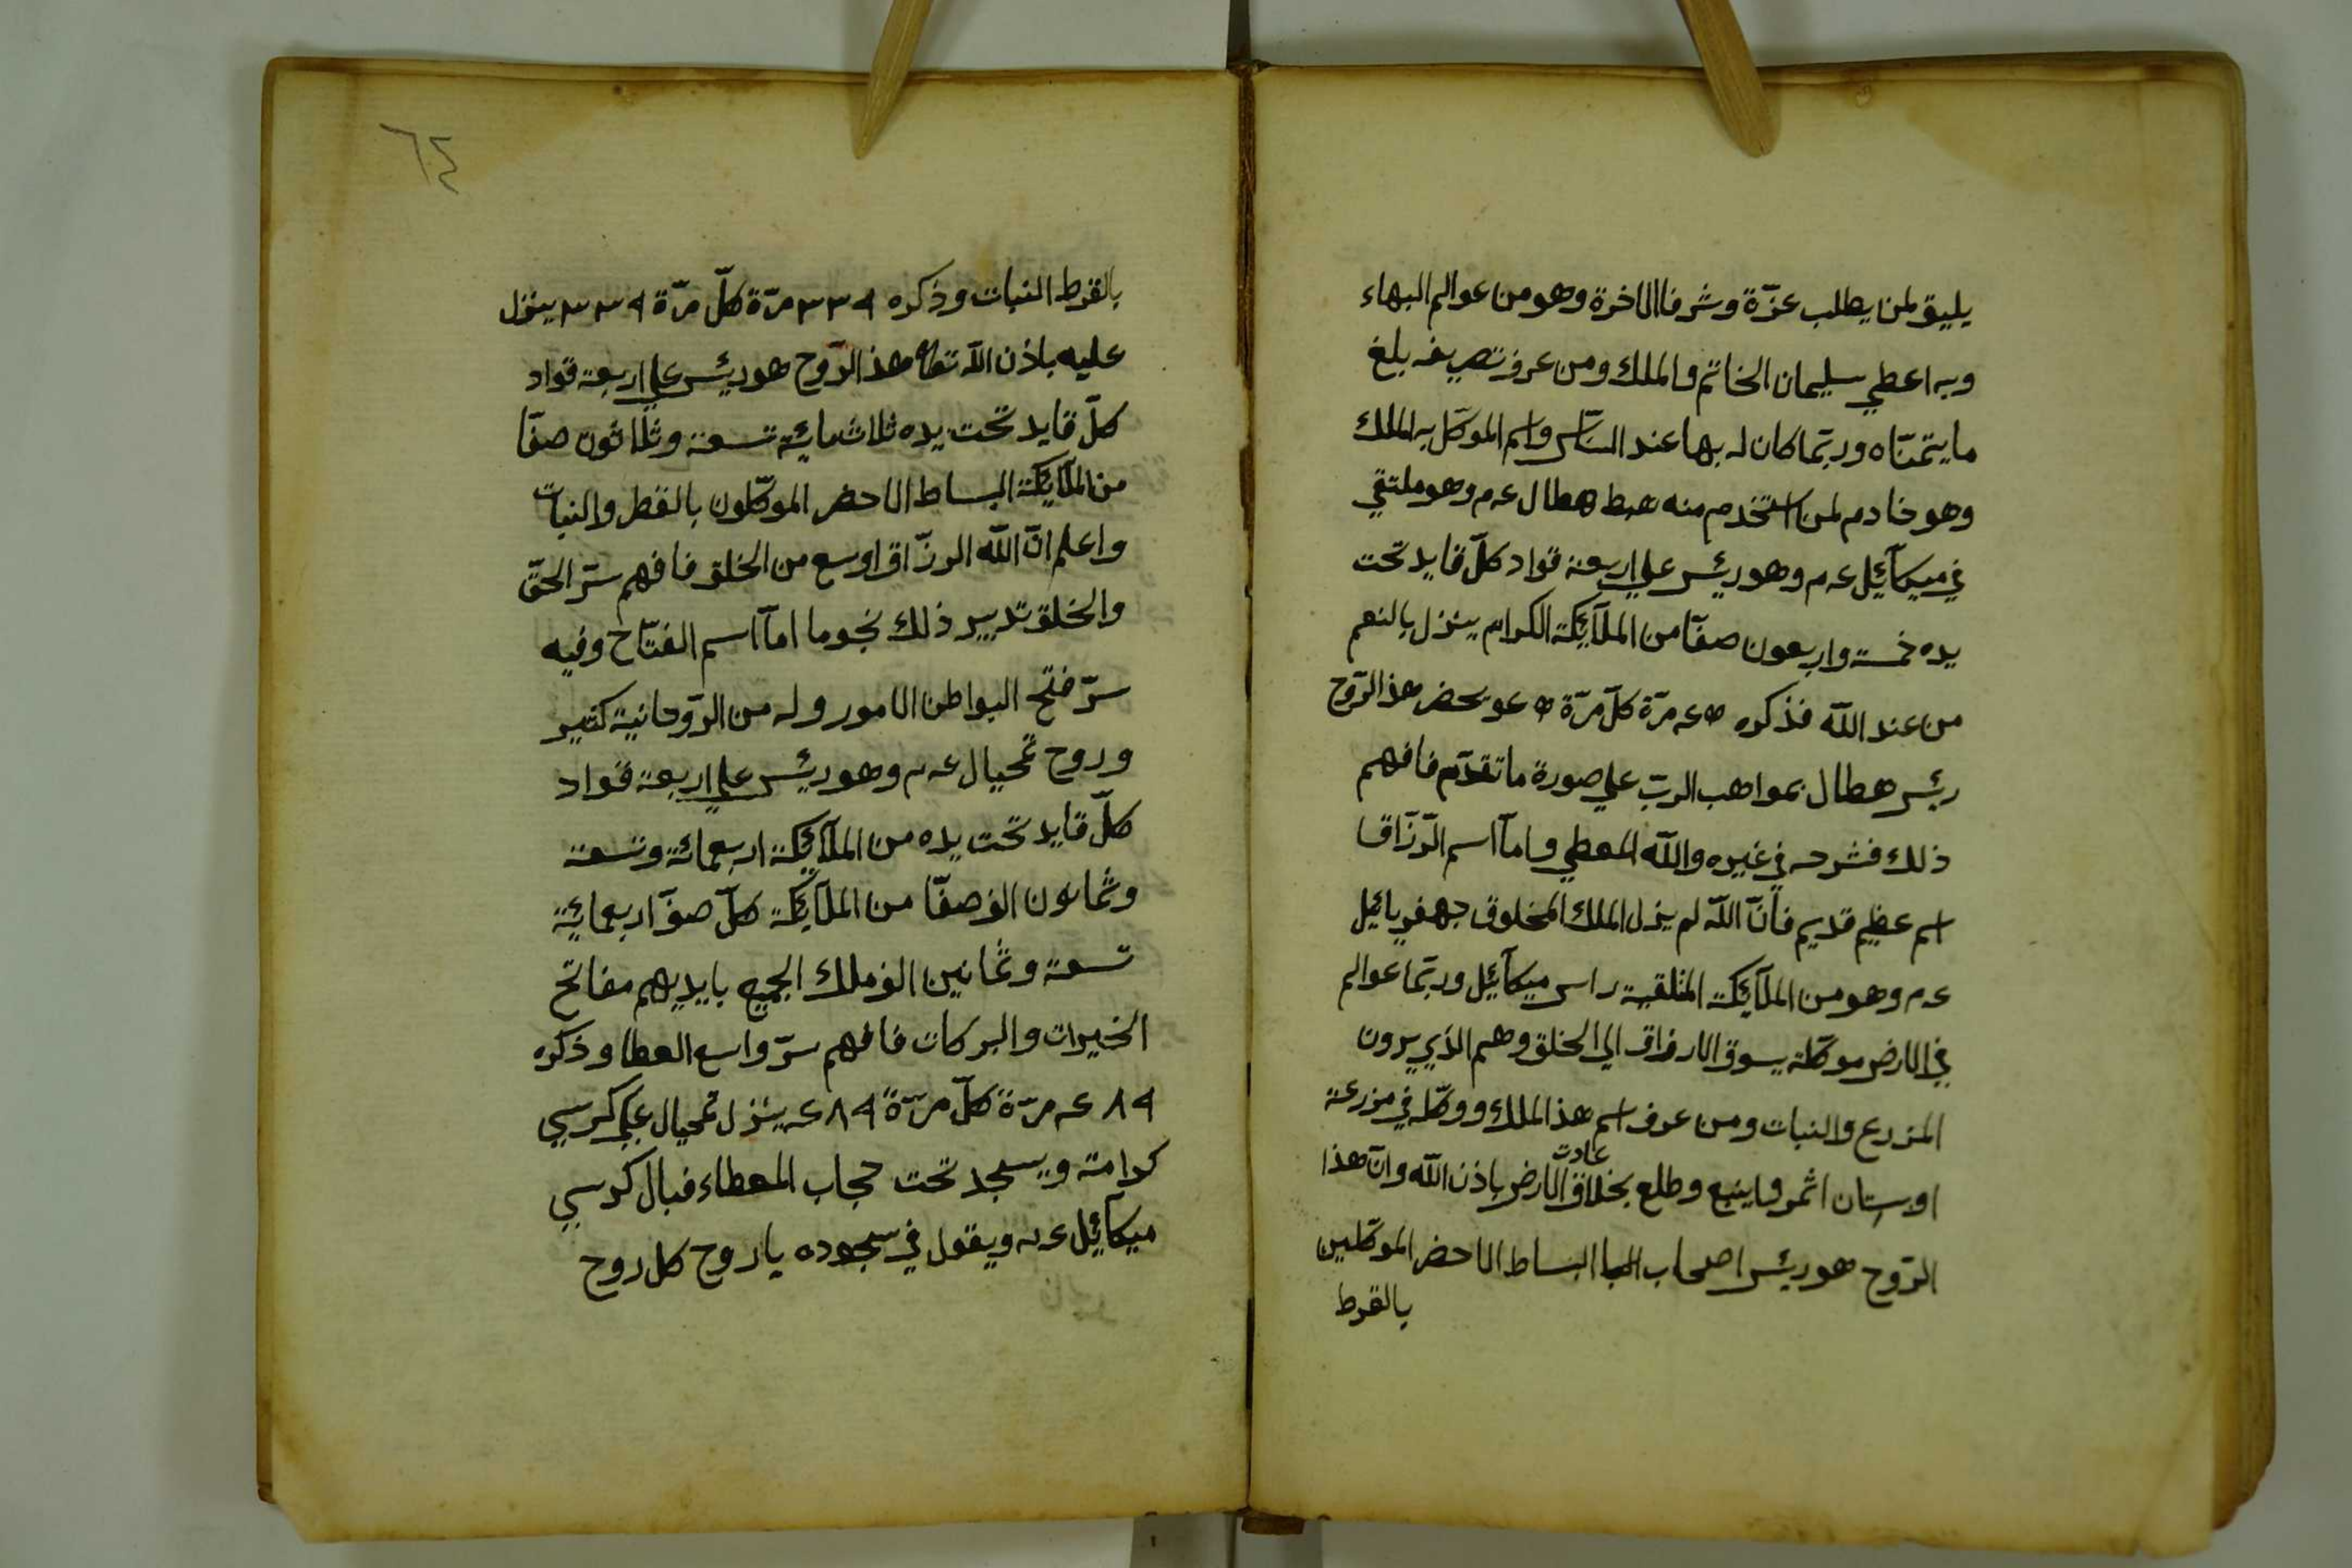 يليق لمن يطلب عزّة وشرفا الاخرة وهو من عوالم البهاء
وبه اعطي سليمان الخاتم والملك ومن عرف تصريفه بلغ
ما يتمنّاه وربّما كان له بها عند النّاس واسم الموكّل به الملك
وهو خادم لمن استخدم منه هبط هطال عم وهو ملتقي
في ميكآئيل عم وهو رئيس علي اربعة قواد كلّ قايد تحت
يده خمسة واربعون صفّا من الملآئكة الكرام ينزل بالنعم
من عند اللّه فذكره ٤٥ مرّة كلّ مرّة ٤٥ ويحضر هذ الرّوح
رئيس هطال بمواهب الربّ علي صورة ما تقدّم فافهم
ذلك فشرحه في غيره واللّه المعطي وامآ اسم الرّزّاق
اسم عظيم قديم فانّ اللّه لم يزل الملك المخلوق جهفريائيل
عم وهو من الملآئكة المتلقية راس ميكآئيل وربّما عوالم
في الارض موكّلة يسوق الارزاق الي الخلق وهم الذي يرون
المزدرع والنبات ومن عرف اسم هذ الملك ووكّله في مزرعة
اوبستان اثمر واينع وطلع بخلاق عادت الارض باذن اللّه وانّ هذا
الرّوح هو رئيس اصحاب البسا البساط الاحضر الموكّلين
بالقرط
٦٤
بالقرط النبات وذكره ٣٣٩ مرّة كلّ مرّة ٣٣٩ ينزل
عليه باذن اللّه تعا هذ الرّوح هو رئيس علي اربعة قواد
كلّ قايد تحت يده ثلاث مائية تسعة وثلاثون صفّا
من الملآئكة البساط الاحضر الموكّلون بالقط والنبات
واعلم انّ اللّه الرزّاق اوسع من الخلق فافهم سرّ الحقّ
والخلق تدبير ذلك نجوما امآ اسم الفتّاح وفيه
سرّ فتح البواطن الامور وله من الرّوحانية كثير
وروح تمحيال عم وهو رئيس علي اربعة قواد
كلّ قايد تحت يده من الملآئكة اربعمائة وتسعة
وثمانون الف صفّا من الملآئكة كلّ صفّ اربعمائية
تسعة وثمانين الف ملك الجميع بايديهم مفاتح
الخيرات والبركات فافهم سرّ واسع العطا وذكره
٤٨٩ مرّة كلّ مرّة ٤٨٩ ينزل تمحيال علي كرسي
كرامة ويسجد تحت حجاب المعطاء فبال كرسي
ميكآئيل عم ويقول في سجوده يا روح كل روح